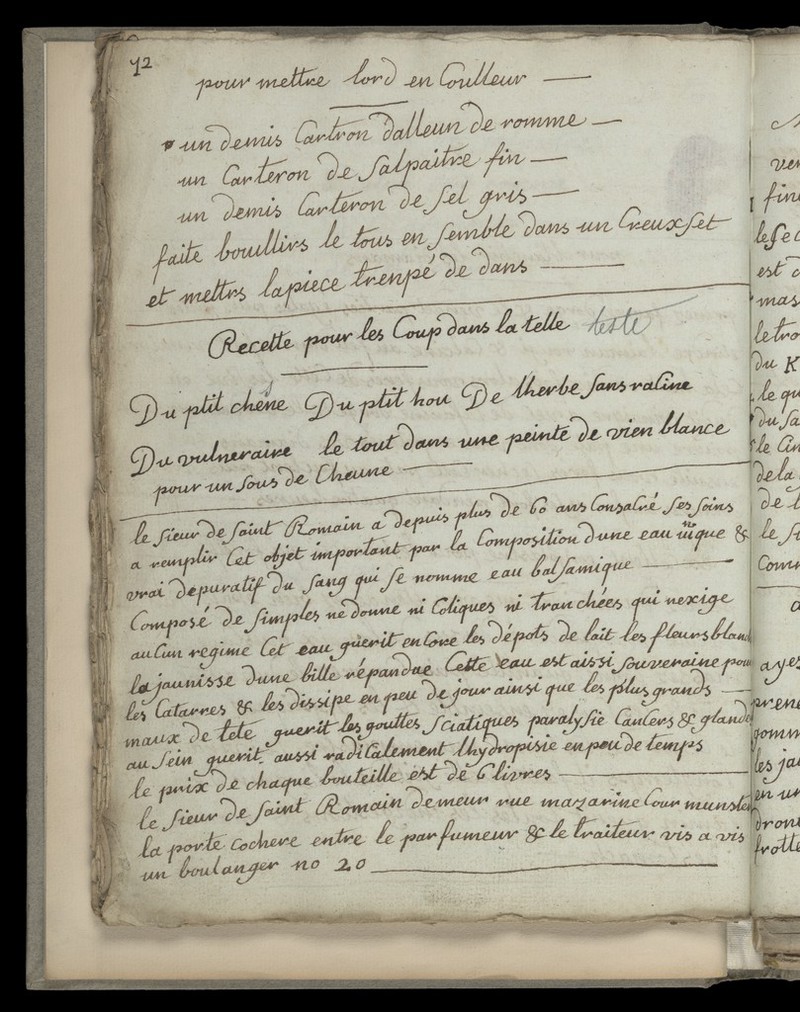 72
pour mettre lord en Coulleur
un demis Cartron dalleun de romme
un Carteron de salpaitre fin
un demis Carteron de sel gris
faite bouillirs le tous en semble dans un Creuxset
et mettrs lapiece trenpé de dans
Recette pour les Coup dans la telle teste
Du ptit chéne Du ptit hou De lherbe sans racine
Du vulneraire le tout dans une peinte de vien blance
pour un sous de Cheune
le sieur de saint Romain a depuis plus de 60 ans Consacré ses soins
a remplir Cet objet important par la Composition dune eau unique &
vrai depuratif du sang qui se nomme eau balsamique
Composé de simples ne donne ni Coliques ni tranchées qui nexige
auCun regime Cet eau guerit enCore les dépots de lait les fleurs blan
la jaunisse dune bille répandue Cette eau est aissi souveraine pou
les Catarres & les dissipe en peu de jour ainsi que les plus grands
maux de tete guerit les gouttes sciatiques paralysie Cancers & glande
au sein guerit aussi radiCalement lhydropisie en peu de temps
le prix de chaque bouteille est de 6 livres
le sieur de saint Romain demeur rue mazarine Cour munster
la porte cochere entre le parfumeur & le traiteur vis a vis
un boulanger no 20
ver
fin
le sec
est
mas
le tro
du K
le qu
du sa
le
de la
de
le
Com
ayez
prene
pomm
les ja
en un
dron
frotte